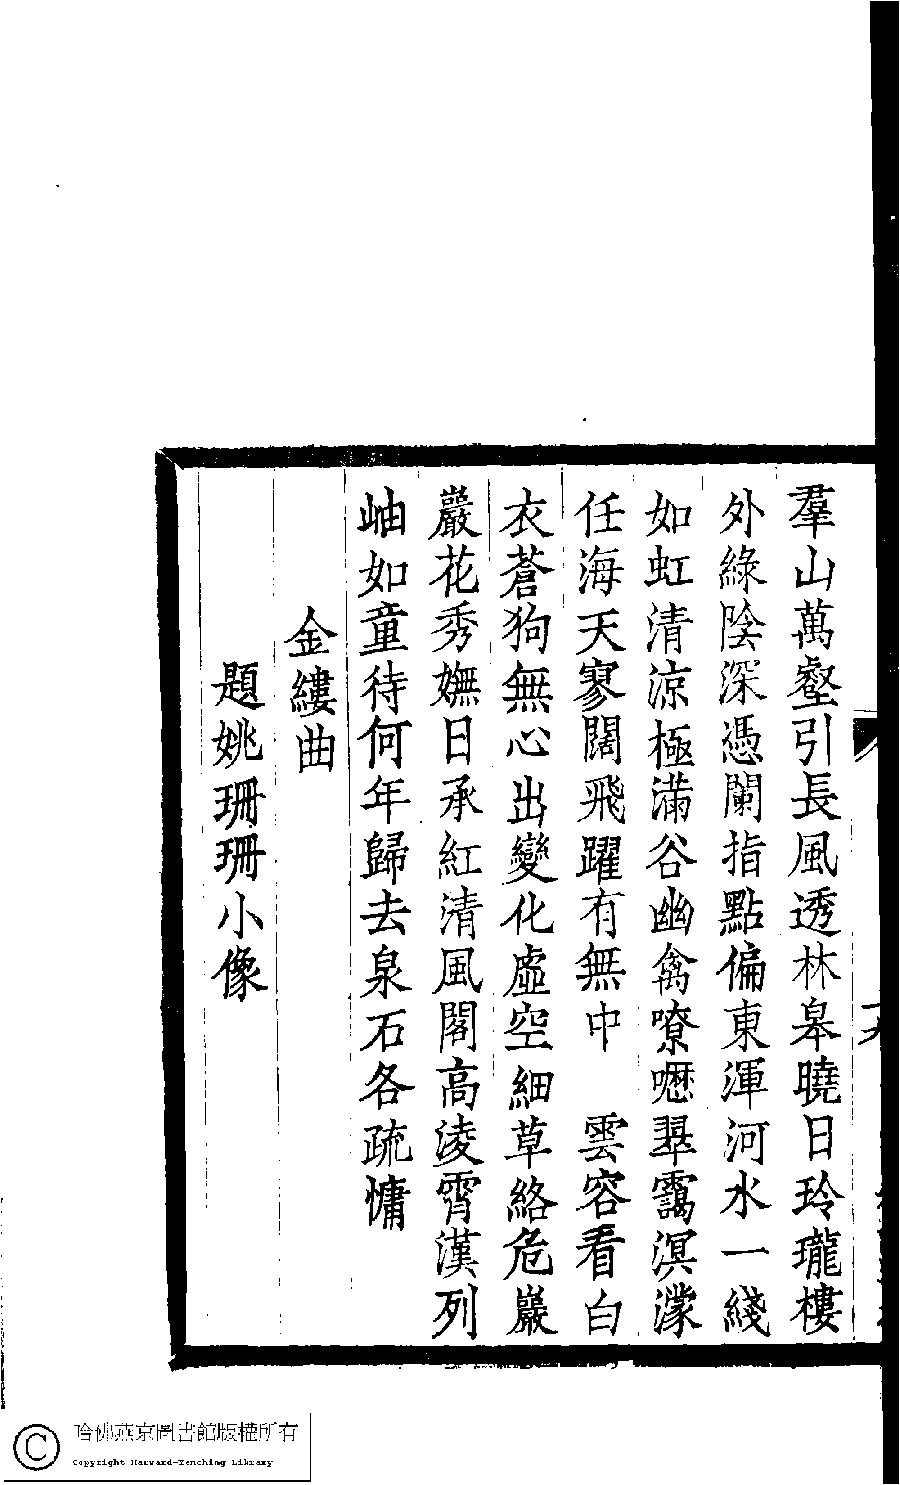 羣山萬壑引長風透林皋曉日玲瓏樓
外綠陰深憑闌指點偏東渾河水一綫
如虹清涼極滿谷幽禽嘹嚦翠靄溟濛
任海天寥闊飛躍有無中　雲容看白
衣蒼狗無心出變化虛空細草絡危巖
巖花秀嫵日承紅清風閣高淩霄漢列
岫如童待何年歸去泉石各疏慵
金縷曲
題姚珊珊小像
哈佛燕京圖書館版權所有
Copyright Harvard-Yenching Library